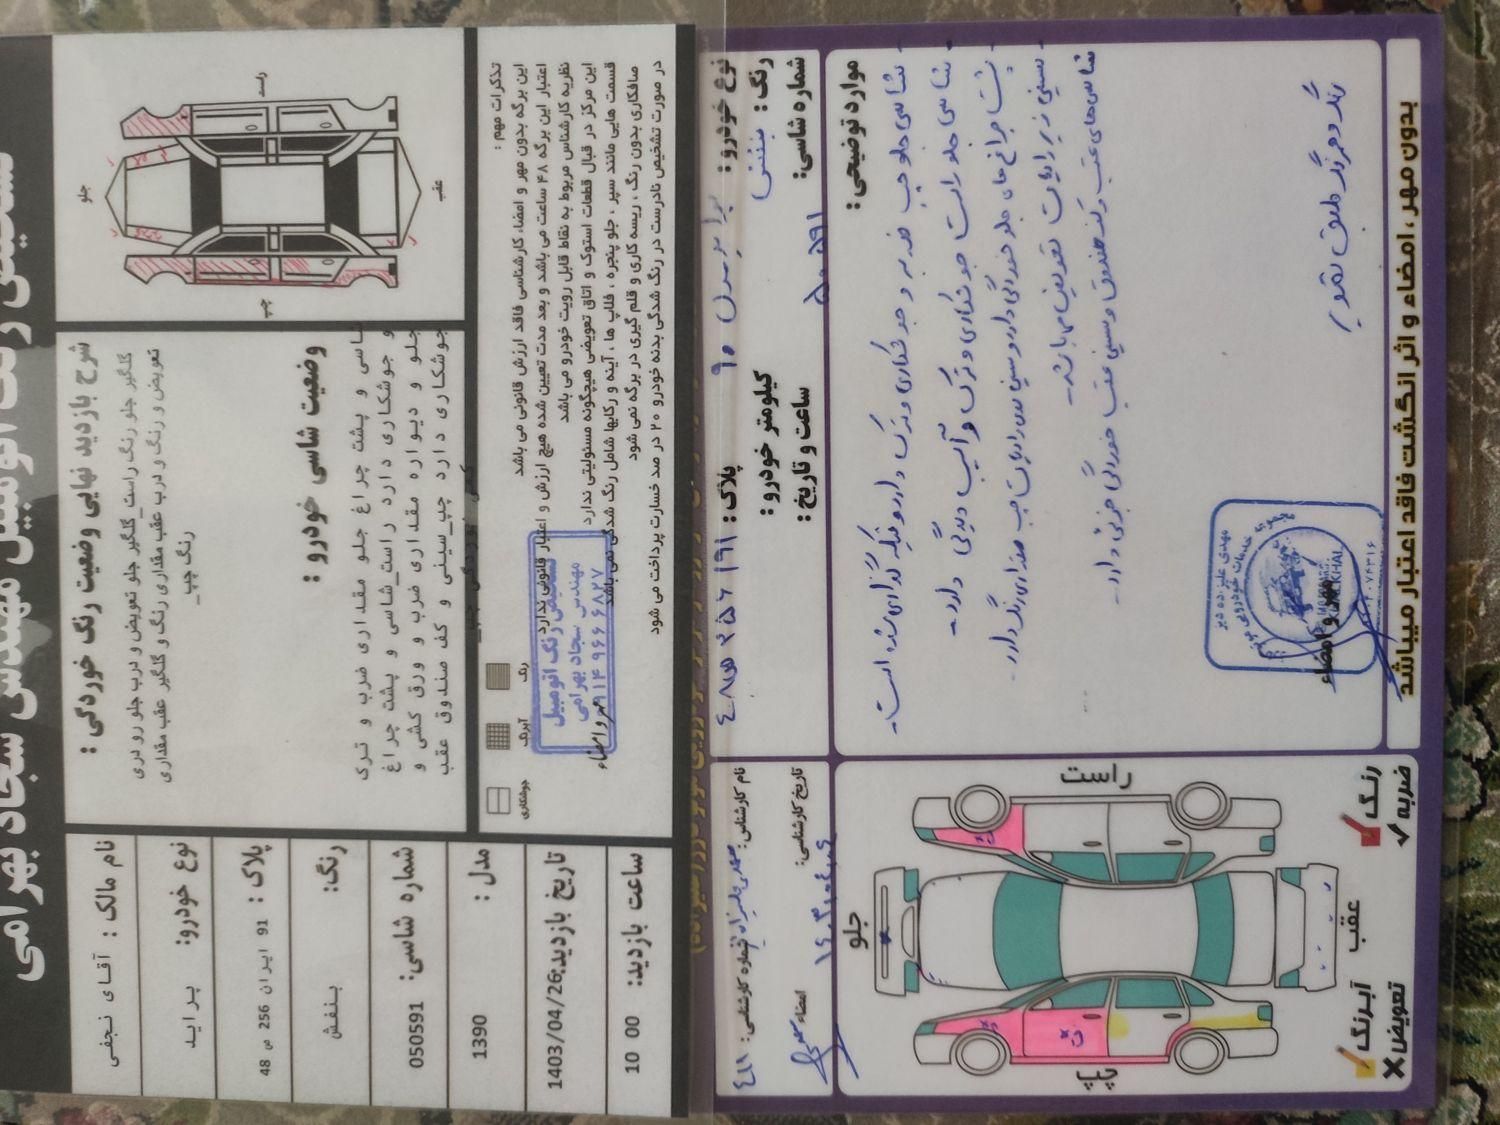 تشخیص رنگ اتومبیل مهندس سجاد بهرامی
نام مالک : آقای نجفی
نوع خودرو: پراید
پلاک : 91 ایران 256 ص 48
رنگ: بنفش
شماره شاسی: 050591
مدل : 1390
تاریخ بازدید:1403/04/26
ساعت بازدید: 10 00
شرح بازدید نهایی وضعیت رنگ خوردگی :
گلگیر جلو رنگ راست_گلگیر جلو تعویض و درب جلو رو دری
تعویض و رنگ و درب عقب مقداری رنگ و گلگیر عقب مقداری
رنگ چپ_
وضعیت شاسی خودرو :
شاسی و پشت چراغ جلو مقداری ضرب و ترک
و جوشکاری دارد راست_شاسی و پشت چراغ
جلو و دیواره مقداری ضرب و ورق کشی و
جوشکاری دارد چپ_سینی و کف صندوق عقب
راست
جلو
عقب
چپ
تذکرات مهم :
این برگه بدون مهر و امضاء کارشناسی فاقد ارزش قانونی می باشد
اعتبار این برگه ۴۸ ساعت می باشد و بعد مدت تعیین شده هیچ ارزش و اعتبار قانونی ندارد
نظریه کارشناس مربوط به نقاط قابل رویت خودرو می باشد
این مرکز در قبال قطعات استوک و اتاق تعویضی هیچگونه مسئولیتی ندارد
قسمت هایی مانند سپر ، جلو پنجره ، فلاپ ها ، آینه و رکابها شامل رنگ شدگی نمی باشد
صافکاری بدون رنگ ، ریسه کاری و قلم گیری در برگه نمی شود
در صورت تشخیص نادرست در رنگ شدگی بدنه خودرو ۲۰ در صد خسارت پرداخت می شود
جوشکاری
آبرنگ
رنگ
مهر و امضاء
تشخیص رنگ اتومبیل
مهندس سجاد بهرامی
۰۹۱۴ ۹۶۶ ۶۸۲۷
نوع خودرو : پراید مدل ۹۰
پلاک : ۴۸ص۲۵۶ ۹۱
نام کارشناس:
شماره کارشناسی:
رنگ : بنفش
کیلومتر خودرو :
شماره شاسی: ۵۰۵۹۱
ساعت و تاریخ :
تاریخ کارشناسی: ۱۴۰۳،۰۴،۰۶
امضاء
موارد توضیحی :
- شاسی جلو چپ ضربه و جوشکاری و ترک دارد و تیکه گذاری شده است.
- شاسی جلو راست جوشکاری و ترک و آسیب دیدگی دارد.
- پشت چراغ های جلو خوردگی دارد و سینی بغل رادیات چپ مقداری رنگ دارد.
- سینی زیر رادیات تعویض می باشد.
شاسی های عقب و کف صندوق و سینی عقب خوردگی جزئی دارد.
رنگ و فرنگ طبق تصویر
مهر و امضاء
بدون مهر، امضاء و اثر انگشت فاقد اعتبار میباشد
راست
جلو
عقب
چپ
رنگ
ضربه
آبرنگ
تعویض